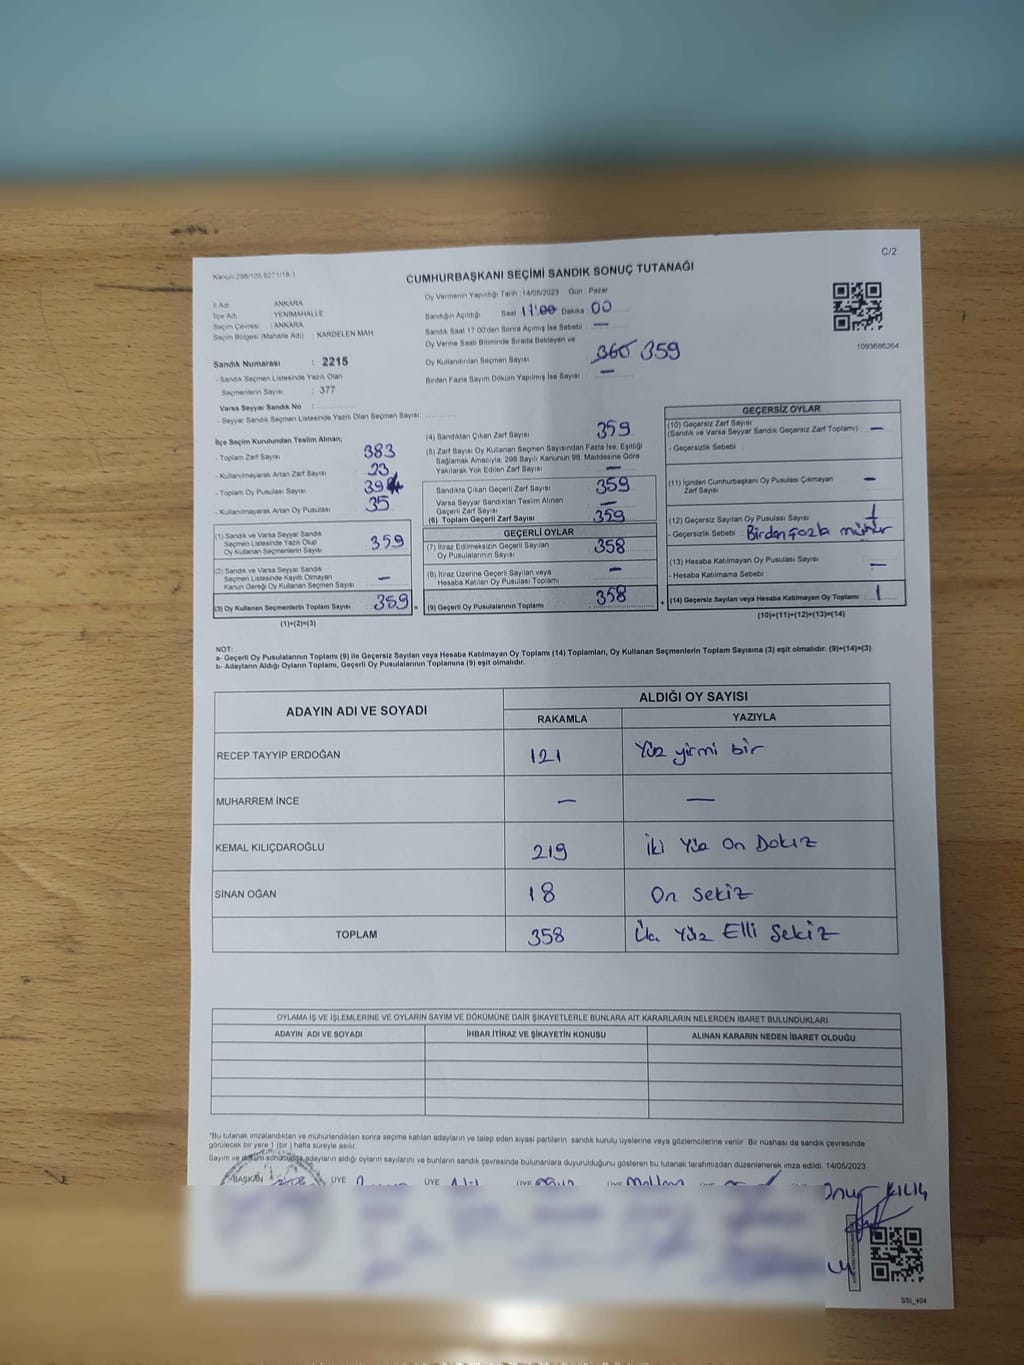 C/2
Kanun:298/105,6271/18-1
CUMHURBAŞKANI SEÇİMİ SANDIK SONUÇ TUTANAĞI
İl Adı ANKARA
İlçe Adı YENİMAHALLE
Seçim Çevresi : ANKARA
Seçim Bölgesi (Mahalle Adı) : KARDELEN MAH.
Sandık Numarası : 2215
- Sandık Seçmen Listesinde Yazılı Olan
Seçmenlerin Sayısı : 377
Varsa Seyyar Sandık No :
- Seyyar Sandık Seçmen Listesinde Yazılı Olan Seçmen Sayısı:
Oy Vermenin Yapıldığı Tarih :14/05/2023 Gün : Pazar
Sandığın Açıldığı Saat 17:00 Dakika 00
Sandık Saat 17:00'den Sonra Açılmış İse Sebebi : —
Oy Verme Saati Bitiminde Sırada Bekleyen ve
Oy Kullandırılan Seçmen Sayısı 360 359
Birden Fazla Sayım Döküm Yapılmış İse Sayısı : —
1093686264
İlçe Seçim Kurulundan Teslim Alınan;
- Toplam Zarf Sayısı 383
- Kullanılmayarak Artan Zarf Sayısı 23
- Toplam Oy Pusulası Sayısı 394
- Kullanılmayarak Artan Oy Pusulası 35
(1) Sandık ve Varsa Seyyar Sandık
Seçmen Listesinde Yazılı Olup
Oy Kullanan Seçmenlerin Sayısı 359
(2) Sandık ve Varsa Seyyar Sandık
Seçmen Listesinde Kayıtlı Olmayan
Kanun Gereği Oy Kullanan Seçmen Sayısı —
(3) Oy Kullanan Seçmenlerin Toplam Sayısı 359 =
(1)+(2)=(3)
(4) Sandıktan Çıkan Zarf Sayısı 359
(5) Zarf Sayısı Oy Kullanan Seçmen Sayısından Fazla İse, Eşitliği
Sağlamak Amacıyla, 298 Sayılı Kanunun 98. Maddesine Göre
Yakılarak Yok Edilen Zarf Sayısı —
Sandıkta Çıkan Geçerli Zarf Sayısı 359
Varsa Seyyar Sandıktan Teslim Alınan
Geçerli Zarf Sayısı —
(6) Toplam Geçerli Zarf Sayısı 359
GEÇERLİ OYLAR
(7) İtiraz Edilmeksizin Geçerli Sayılan
Oy Pusulalarının Sayısı 358
(8) İtiraz Üzerine Geçerli Sayılan veya
Hesaba Katılan Oy Pusulası Toplamı —
(9) Geçerli Oy Pusulalarının Toplamı 358 +
GEÇERSİZ OYLAR
(10) Geçersiz Zarf Sayısı
(Sandık ve Varsa Seyyar Sandık Geçersiz Zarf Toplamı) : —
- Geçersizlik Sebebi
(11) İçinden Cumhurbaşkanı Oy Pusulası Çıkmayan
Zarf Sayısı —
(12) Geçersiz Sayılan Oy Pusulası Sayısı 1
- Geçersizlik Sebebi Birden fazla mühür
(13) Hesaba Katılmayan Oy Pusulası Sayısı : —
- Hesaba Katılmama Sebebi
(14) Geçersiz Sayılan veya Hesaba Katılmayan Oy Toplamı : 1
(10)+(11)+(12)+(13)=(14)
NOT:
a- Geçerli Oy Pusulalarının Toplamı (9) ile Geçersiz Sayılan veya Hesaba Katılmayan Oy Toplamı (14) Toplamları, Oy Kullanan Seçmenlerin Toplam Sayısına (3) eşit olmalıdır. (9)+(14)=(3)
b- Adayların Aldığı Oyların Toplamı, Geçerli Oy Pusulalarının Toplamına (9) eşit olmalıdır.
ADAYIN ADI VE SOYADI ALDIĞI OY SAYISI
RAKAMLA YAZIYLA
RECEP TAYYİP ERDOĞAN 121 Yüz yirmi bir
MUHARREM İNCE — —
KEMAL KILIÇDAROĞLU 219 İki Yüz On Dokız
SİNAN OĞAN 18 On Sekiz
TOPLAM 358 Yüz Elli Sekiz
OYLAMA İŞ VE İŞLEMLERİNE VE OYLARIN SAYIM VE DÖKÜMÜNE DAİR ŞİKAYETLERLE BUNLARA AİT KARARLARIN NELERDEN İBARET BULUNDUKLARI
ADAYIN ADI VE SOYADI İHBAR İTİRAZ VE ŞİKAYETİN KONUSU ALINAN KARARIN NEDEN İBARET OLDUĞU
*Bu tutanak imzalandıktan ve mühürlendikten sonra seçime katılan adayların ve talep eden siyasi partilerin sandık kurulu üyelerine veya gözlemcilerine verilir. Bir nüshası da sandık çevresinde
görülecek bir yere 1 (bir) hafta süreyle asılır.
Sayım ve döküm sonucunda adayların aldığı oyların sayılarını ve bunların sandık çevresinde bulunanlara duyurulduğunu gösteren bu tutanak tarafımızdan düzenlenerek imza edildi. 14/05/2023
BAŞKAN ÜYE ÜYE ÜYE ÜYE
Onur KILIÇ
SSI_404